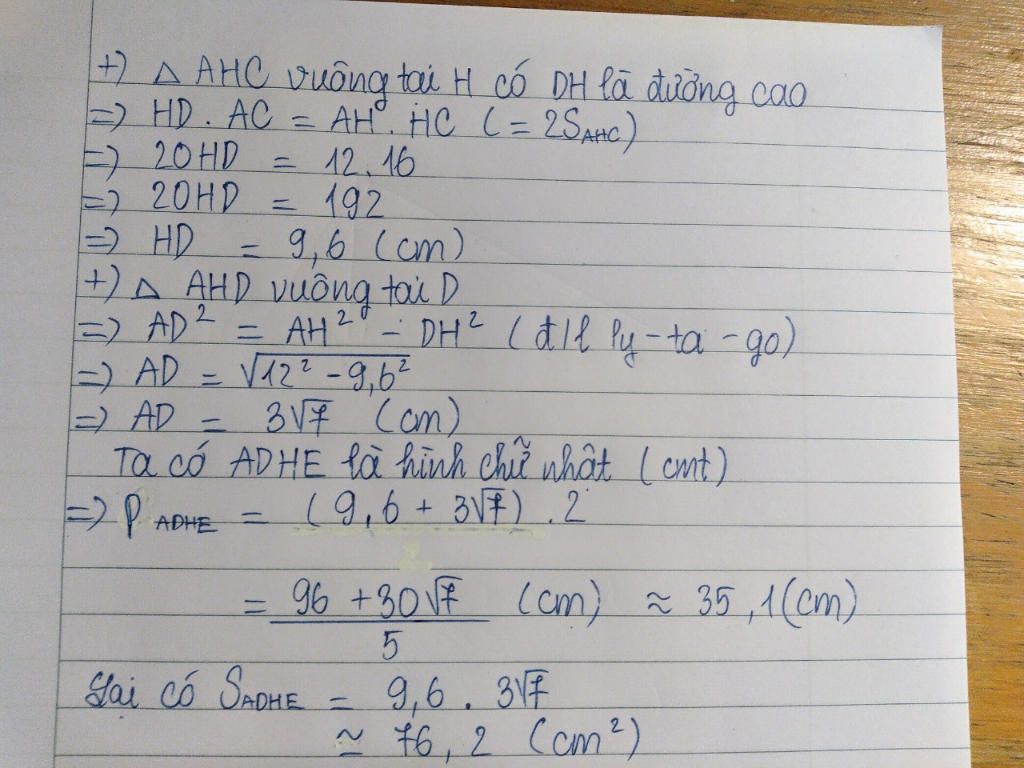 +) △ AHC vuông tại H có DH là đường cao
=> HD . AC = AH . HC (= 2S_AHC)
=> 20HD = 12.16
=> 20HD = 192
=> HD = 9,6 (cm)
+) △ AHD vuông tại D
=> AD² = AH² - DH² (đ/l Py-ta-go)
=> AD = √12² - 9,6²
=> AD = 3√7 (cm)
Ta có ADHE là hình chữ nhật (cmt)
=> P_ADHE = (9,6 + 3√7) . 2
= 96 + 30√7 / 5 (cm) ≈ 35,1(cm)
Lại có S_ADHE = 9,6 . 3√7
≈ 76,2 (cm²)